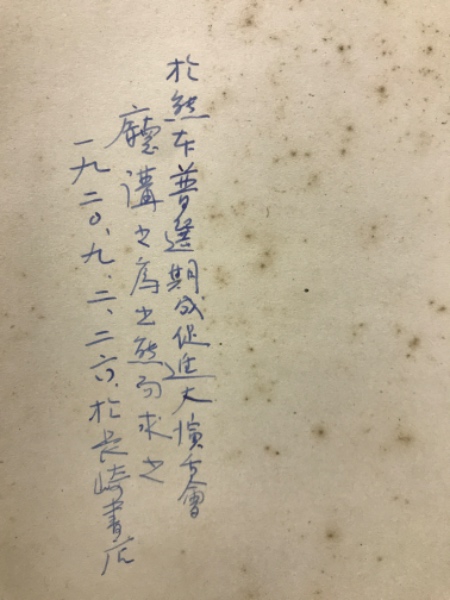 於熊本普選期成促進大演舌會
講之為出熊而求之
一九二〇、九、二、二六、於長崎書店